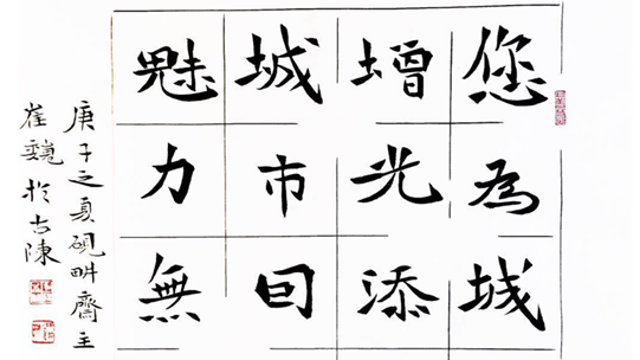 您為城
增光添
城市囙
魅力無
庚子之夏硯畊齋主
崔 於古陳